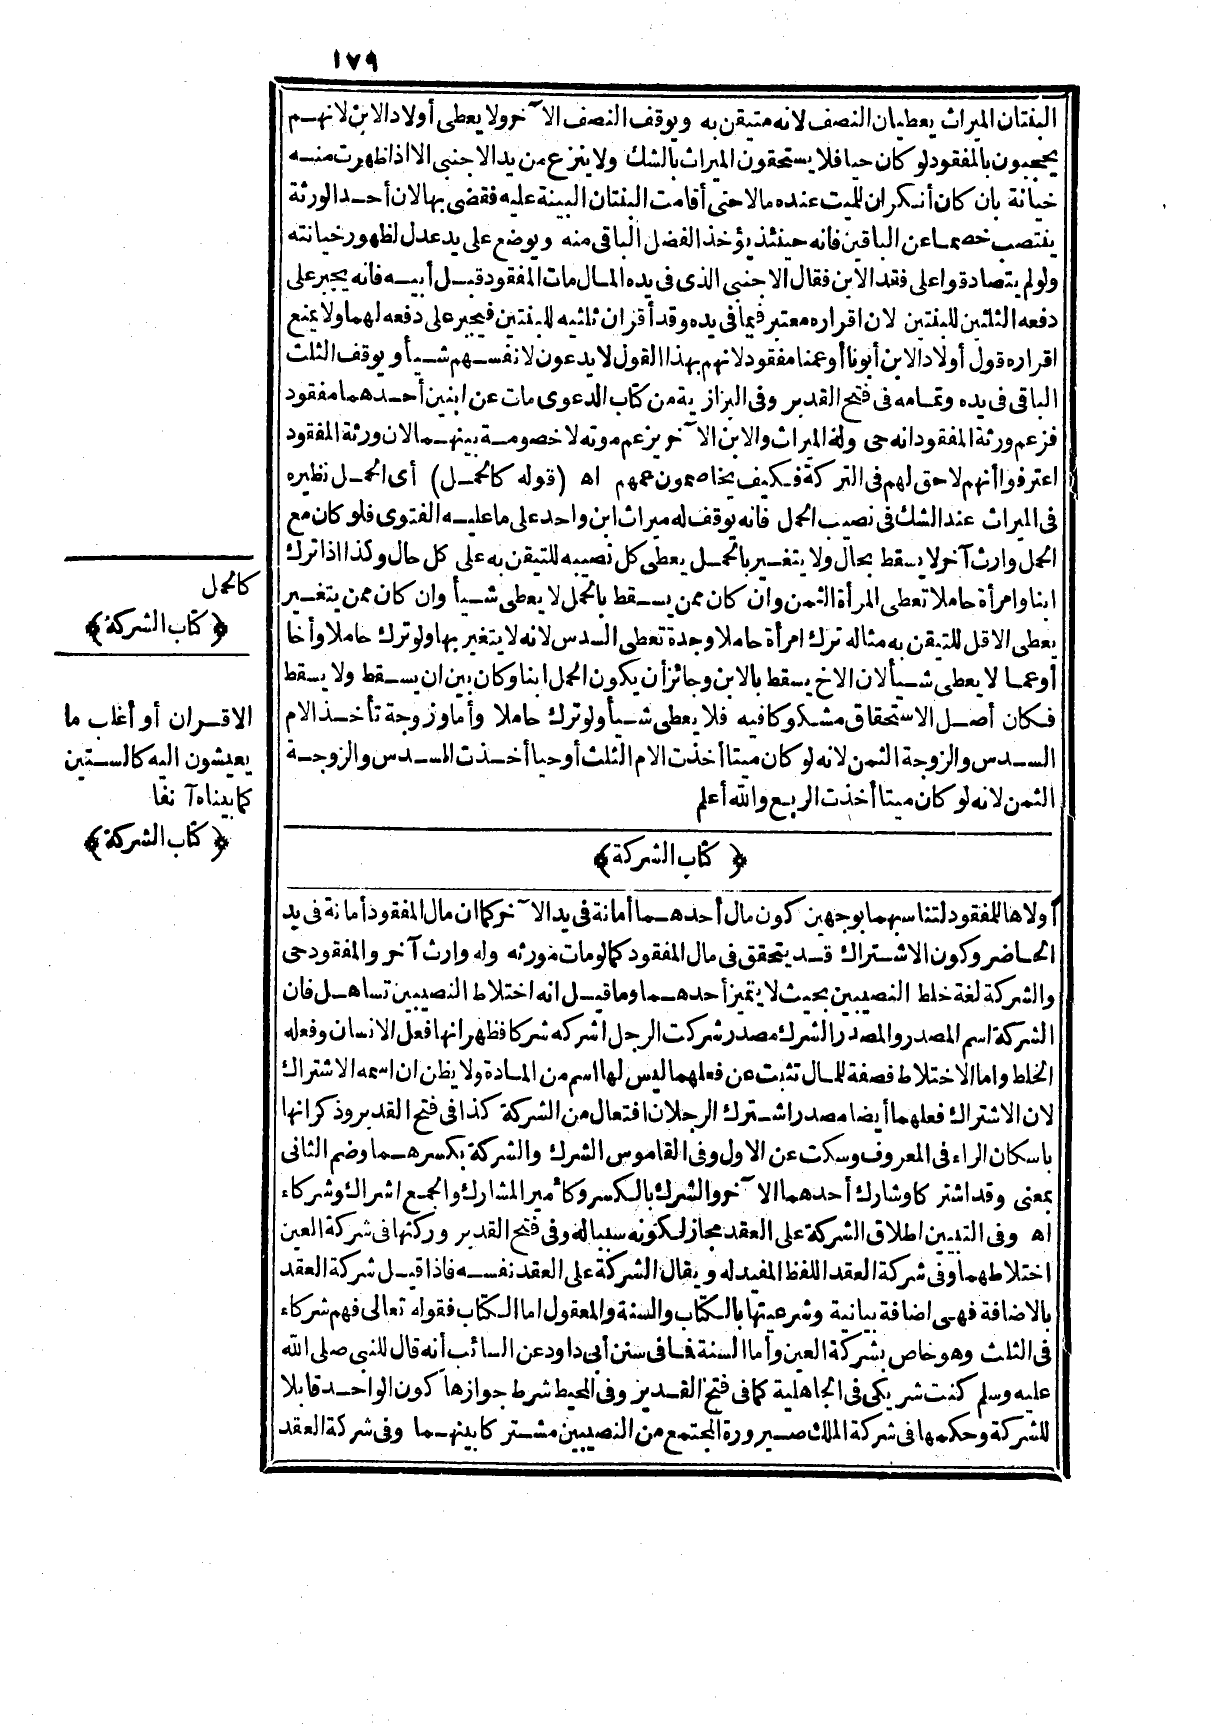 ١٧٩
البنتان الميراث يعطيان النصف لانه متيقن به ويوقف النصف الآخر ولا يعطى أولاد الابن لانهم
يحجبون بالمفقود لو كان حيا فلا يستحقون الميراث بالشك ولا ينزع من يد الاجنبى الا اذا ظهرت منه
خيانة بان كان أنكر ان للميت عنده مالا حتى أقامت البنتان البينة عليه فقضى بها لان أحد الورثة
ينتصب خصما عن الباقين فانه حينئذ يؤخذ الفضل الباقى منه ويوضع على يد عدل لظهور خيانته
ولو لم يتصادقوا على فقد الابن فقال الاجنبى الذى فى يده المال مات المفقود قبل أبيه فانه يجبر على
دفعه الثلثين للبنتين لان اقراره معتبر فيما فى يده وقد أقر ان ثلثيه للبنتين فيجبر على دفعه لهما ولا يمنع
اقراره قول أولاد الابن أبونا أو عمنا مفقود لانهم بهذا القول لا يدعون لانفسهم شيأ ويوقف الثلث
الباقى فى يده وتمامه فى فتح القدير وفى البزازية من كتاب الدعوى مات عن ابنين أحدهما مفقود
فزعم ورثة المفقود انه حى وله الميراث والابن الآخر يزعم موته لا خصومة بينهما لان ورثة المفقود
اعترفوا أنهم لا حق لهم فى التركة فكيف يخاصمون عمهم اه (قوله كالحمل) أى الحمل نظيره
فى الميراث عند الشك فى نصيب الحمل فانه يوقف له ميراث ابن واحد على ما عليه الفتوى فلو كان مع
الحمل وارث آخر لا يسقط بحال ولا يتغير بالحمل يعطى كل نصيبه للتيقن به على كل حال وكذا اذا ترك
ابنا وامرأة حاملا تعطى المرأة الثمن وان كان ممن يسقط بالحمل لا يعطى شيأ وان كان ممن يتغير
يعطى الاقل للتيقن به مثاله ترك امرأة حاملا وجدة تعطى السدس لانه لا يتغير بها ولو ترك حاملا وأخا
أو عما لا يعطى شيأ لان الاخ يسقط بالابن وجائز أن يكون الحمل ابنا وكان بين ان يسقط ولا يسقط
فكان أصل الاستحقاق مشكوكا فيه فلا يعطى شيأ ولو ترك حاملا وأما وزوجة تأخذ الام
السدس والزوجة الثمن لانه لو كان ميتا أخذت الام الثلث أو حيا أخذت السدس والزوجة
الثمن لانه لو كان ميتا أخذت الربع والله أعلم
﴿كتاب الشركة﴾
أولاها للمفقود لتناسبهما بوجهين كون مال أحدهما أمانة فى يد الآخر كما ان مال المفقود أمانة فى يد
الحاضر وكون الاشتراك قد يتحقق فى مال المفقود كما لو مات مورثه وله وارث آخر والمفقود حى
والشركة لغة خلط النصيبين بحيث لا يتميز أحدهما وما قيل انه اختلاط النصيبين تساهل فان
الشركة اسم المصدر والمصدر الشرك مصدر شركت الرجل اشركه شركا فظهر انها فعل الانسان وفعله
الخلط واما الاختلاط فصفة للمال تثبت عن فعلهما ليس لها اسم من المادة ولا يظن ان اسمه الاشتراك
لان الاشتراك فعلهما أيضا مصدر اشترك الرجلان افتعال من الشركة كذا فى فتح القدير وذكر انها
باسكان الراء فى المعروف وسكت عن الاول وفى القاموس الشرك والشركة بكسرهما وضم الثانى
بمعنى وقد اشتركا وشارك أحدهما الآخر والشرك بالكسر وكأمير المشارك والجمع اشراك وشركاء
اه وفى التبيين اطلاق الشركة على العقد مجاز لكونه سبباله وفى فتح القدير وركنها فى شركة العين
اختلاطهما وفى شركة العقد اللفظ المفيد له ويقال الشركة على العقد نفسه فاذا قيل شركة العقد
بالاضافة فهى اضافة بيانية وشرعيتها بالكتاب والسنة والمعقول اما الكتاب فقوله تعالى فهم شركاء
فى الثلث وهو خاص بشركة العين وأما السنة فما فى سنن أبى داود عن السائب أنه قال للنبى صلى الله
عليه وسلم كنت شريكى فى الجاهلية كما فى فتح القدير وفى المحيط شرط جوازها كون الواحد قابلا
للشركة وحكمها فى شركة الملك صيرورة المجتمع من النصيبين مشتركا بينهما وفى شركة العقد
كالحمل
﴿كتاب الشركة﴾
الاقران أو أغلب ما
يعيشون اليه كالستين
كما بيناه آنفا
﴿كتاب الشركة﴾